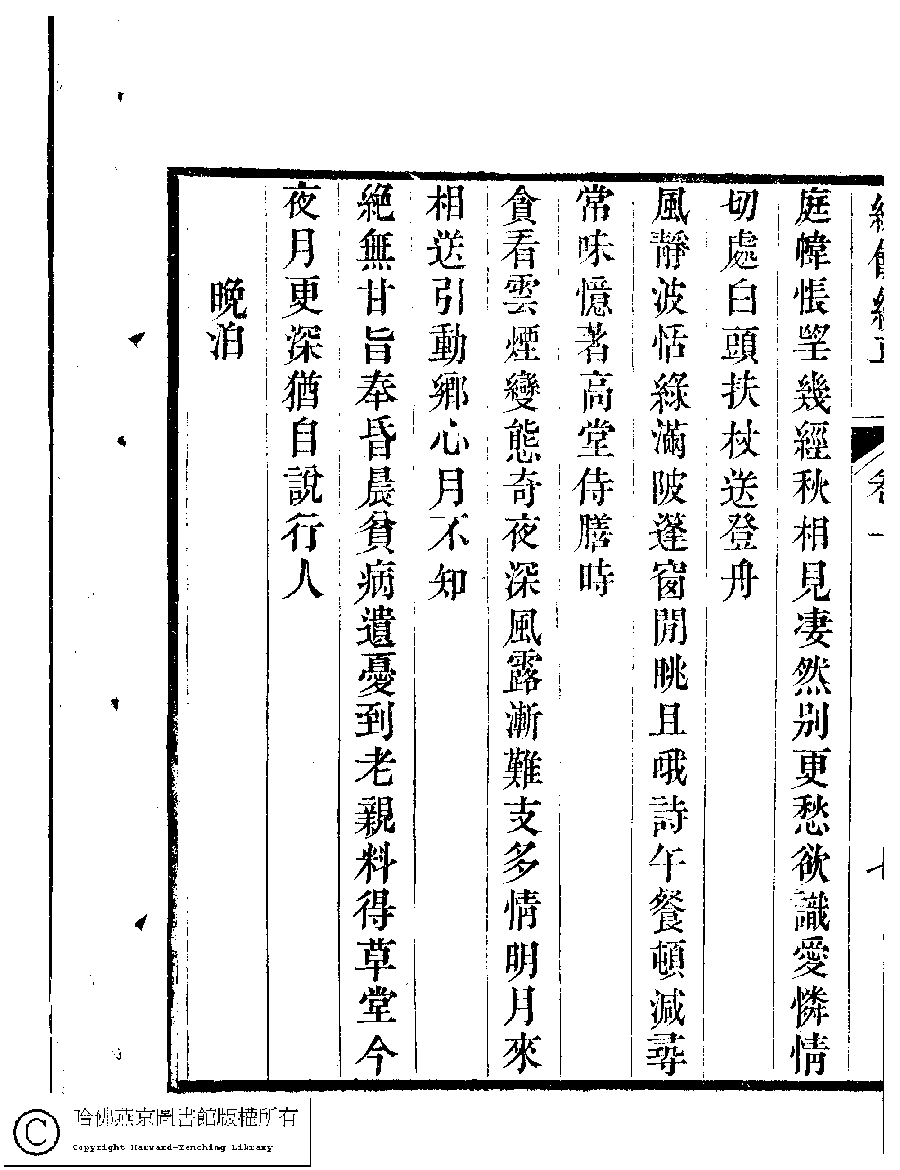 庭幃悵望幾經秋相見凄然别更愁欲識愛憐情
切處白頭扶杖送登舟
風靜波恬綠滿陂篷窗閒眺且哦詩午餐頓減尋
常味憶著高堂侍膳時
貪看雲煙變態奇夜深風露漸難支多情明月來
相送引動鄉心月不知
絕無甘旨奉昏晨貧病遺憂到老親料得草堂今
夜月更深猶自說行人
晚泊
哈佛燕京圖書館版權所有
Copyright Harvard-Yenching Library